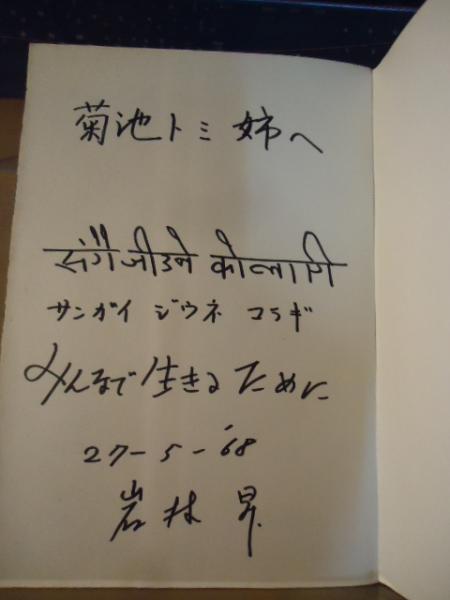 菊池トミ姉へ
संगै जीउने कोलागि
サンガイ ジウネ コラギ
みんなで生きるために
27-5-'68
岩村 昇